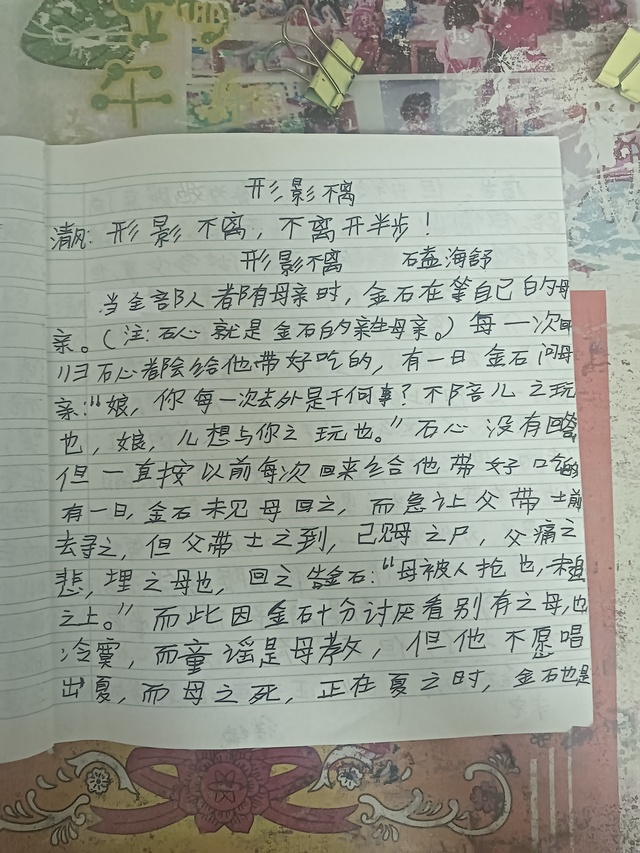 形影不离
清风:形影不离,不离开半步!
形影不离 磕海舒
当全部人都有母亲时,金石在等自己的母
亲。(注:石心就是金石的亲生母亲。)每一次回
归石心都会给他带好吃的,有一日金石问母
亲:“娘,你每一次去外是干何事?不陪儿之玩
也,娘,儿想与你之玩也。”石心没有回答
但一直按以前每次回来给他带好吃的
有一日,金石未见母回之,而急让父带士前
去寻之,但父带士之到,已见母之尸,父痛之
悲,埋之母也,回之告金石:“母被人抢也,未追
之上。”而此因金石十分讨厌看别有之母,也
冷寞,而童谣是母教,但他不愿唱
出夏,而母之死,正在夏之时,金石也是